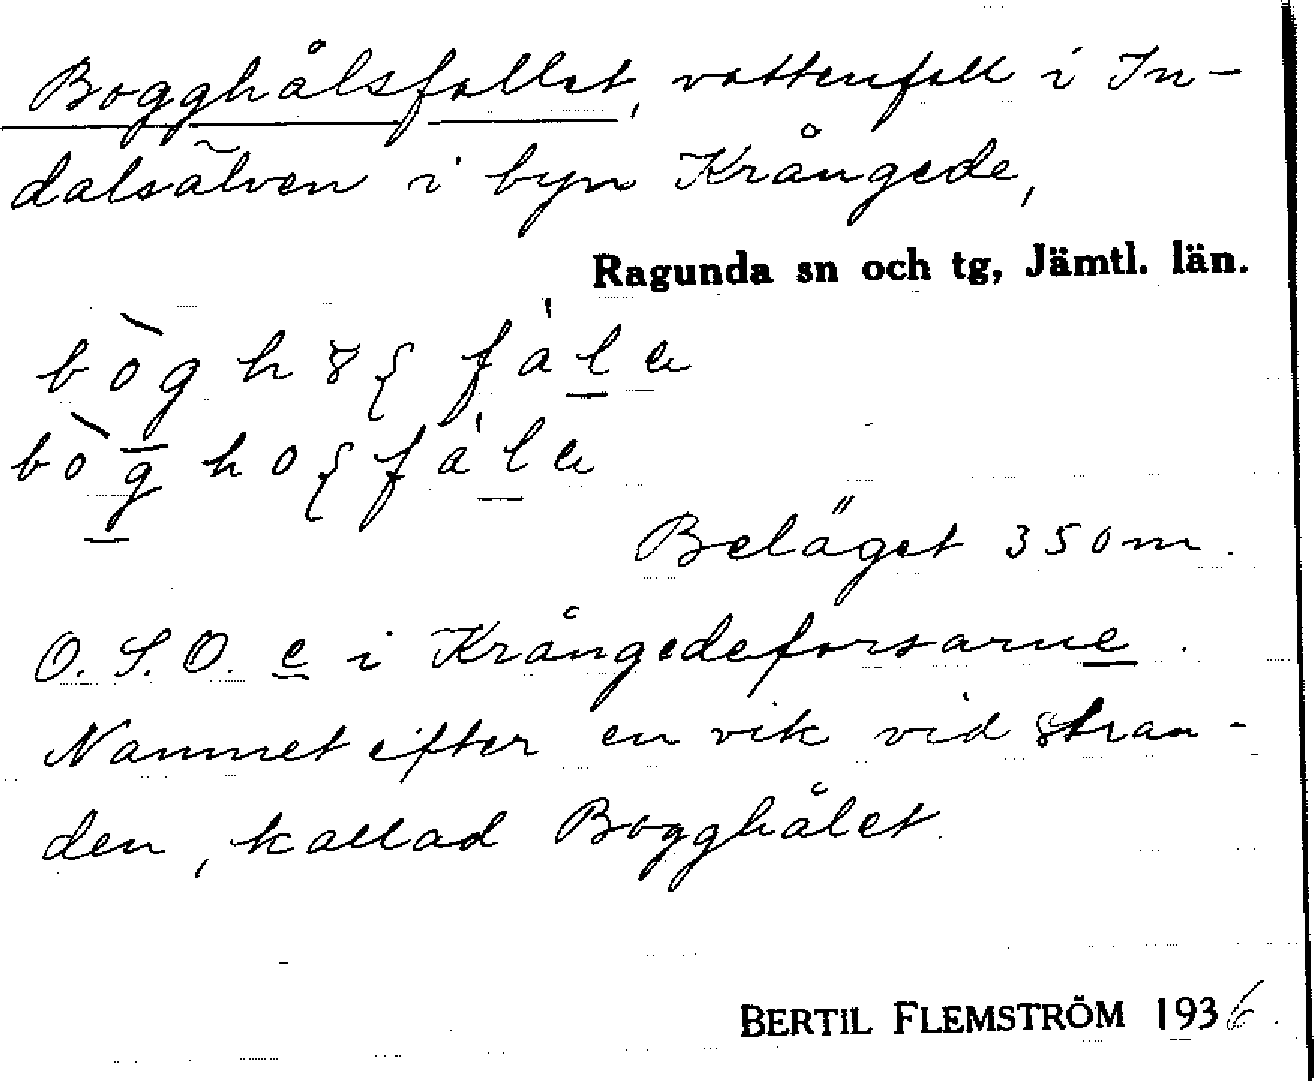 Bogghålsfallet, vattenfall i In-
dalsälven i byn Krångede,
Ragunda sn och tg, Jämtl. län.
Beläget 350 m.
O.S.O. e i Krångedeforsarne.
Namnet efter en vik vid stran-
den, kallad Bogghålet.
BERTIL FLEMSTRÖM 1936.